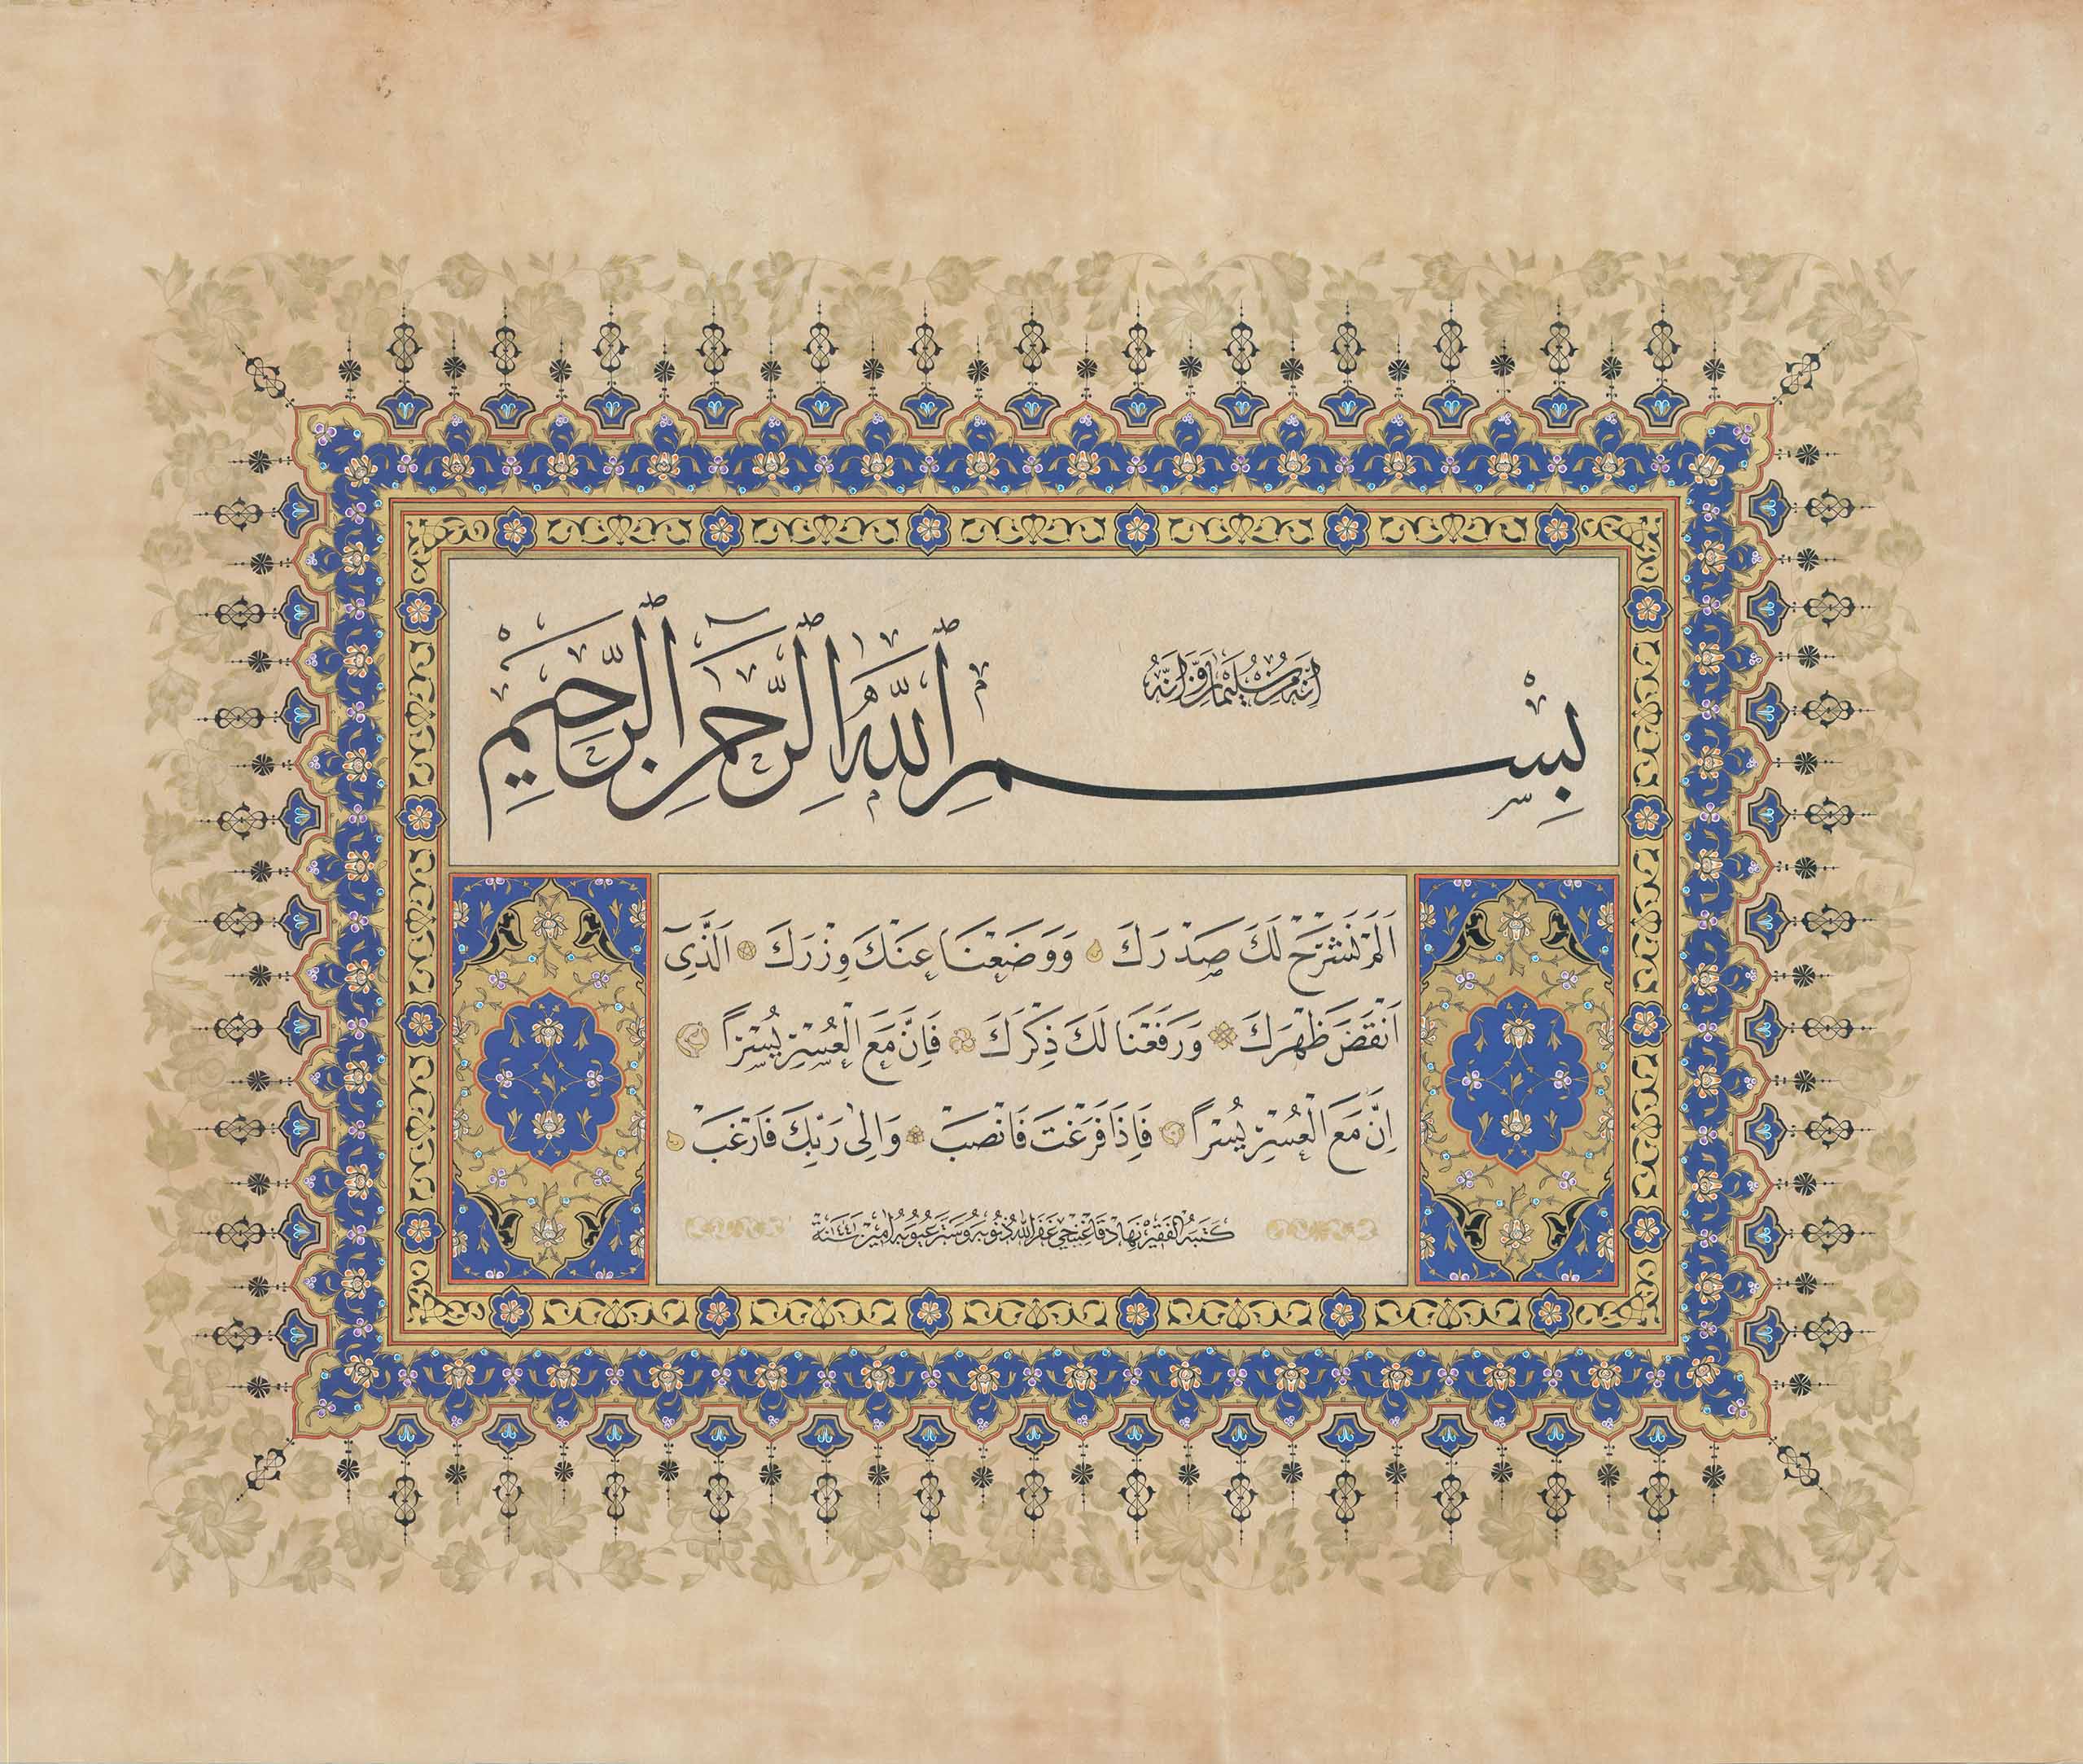 اِنَّهُ مِنْ سُلَيْمٰانَ وَاِنَّهُ
بِسْمِ ٱللّٰهِ ٱلرَّحْمٰنِ ٱلرَّحِيمِ
اَلَمْ نَشْرَحْ لَكَ صَدْرَكَ وَوَضَعْنَا عَنْكَ وِزْرَكَ اَلَّذِىٓ
اَنْقَضَ ظَهْرَكَ وَرَفَعْنَا لَكَ ذِكْرَكَ فَاِنَّ مَعَ الْعُسْرِ يُسْرًا
اِنَّ مَعَ الْعُسْرِ يُسْرًا فَاِذَا فَرَغْتَ فَانْصَبْ وَاِلٰى رَبِّكَ فَارْغَبْ
كَتَبَهُ الْفَقِيرُ نِهَاد غَفَرَ اللّٰهُ ذُنُوبَهُ وَسَتَرَ عُيُوبَهُ اٰمِينْ سَنَة